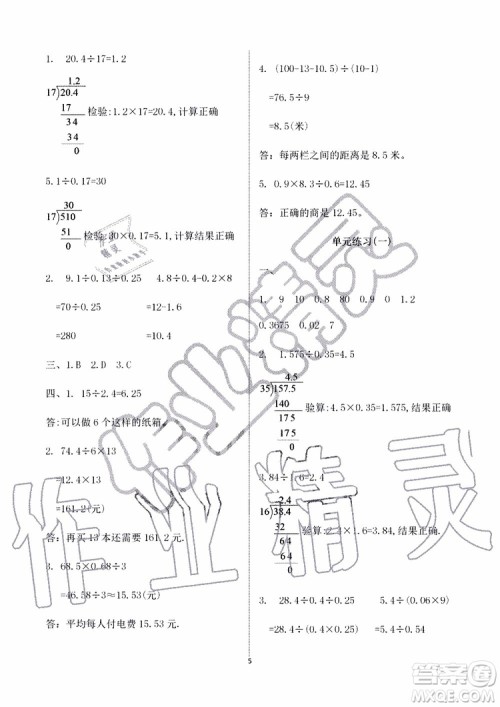 1. 20.4÷17=1.2
1.2
17 20.4
17 检验:1.2×17=20.4,计算正确
34
34
0
5.1÷0.17=30
30
17 510
51 检验:30×0.17=5.1,计算结果正确
0
2. 9.1÷0.13÷0.25 4.8÷0.4-0.2×8
=70÷0.25 =12-1.6
=280 =10.4
三、1.B 2.D 3.C
四、1. 15÷2.4=6.25
答:可以做 6 个这样的纸箱.
2. 74.4÷6×13
=12.4×13
=161.2(元)
答:再买 13 本还需要 161.2 元.
3. 68.5×0.68÷3
=46.58÷3=15.53(元)
答:平均每人付电费 15.53 元.
4. (100-13-10.5)÷(10-1)
=76.5÷9
=8.5(米)
答:每两栏之间的距离是 8.5 米。
5. 0.9×8.3÷0.6=12.45
答:正确的商是 12.45。
单元练习(一)
一、
1. 9 10 0.8 90 0 1.2
0.3675 0.02 7
2. 1.575÷0.35=4.5
4.5
35 157.5
140 验算:4.5×0.35=1.575,结果正确
175
175
0
3.84÷1.6=2.4
2.4
16 38.4
32 验算:2.4×1.6=3.84,结果正确
64
64
0
3. 28.4÷0.4÷0.25 5.4÷(0.06×9)
=28.4÷(0.4×0.25) =5.4÷0.54
5
作业精灵
作业精灵
答案圈
MXQE.COM